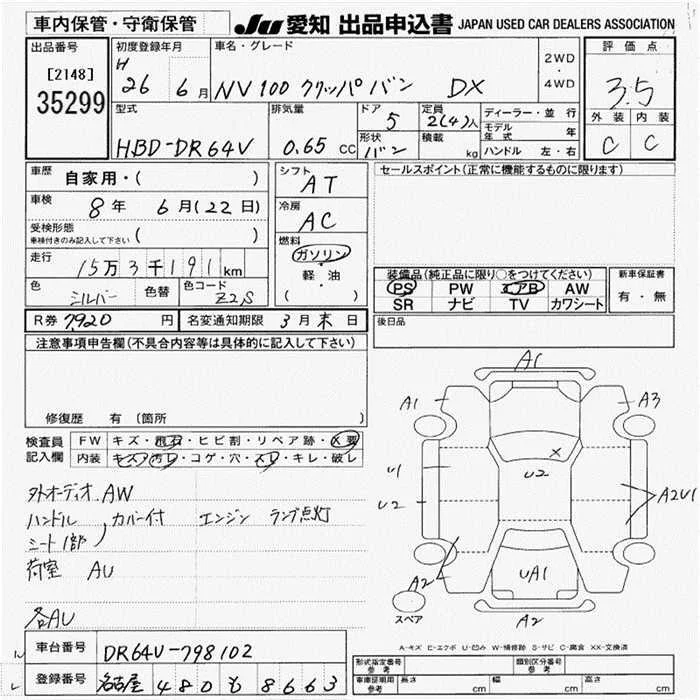 車内保管・守衛保管
JU 愛知 出品申込書 JAPAN USED CAR DEALERS ASSOCIATION
出品番号
[2148]
35299
初度登録年月
H 26 6月
車名・グレード
NV100 クリッパバン DX
2WD
・
4WD
評価点
3.5
外装 内装
C C
型式
HBD-DR64V
排気量
0.65 cc
ドア
5
形状
バン
定員
2(4)人
積載
kg
ディーラー・並行
モデル年式 年
ハンドル 左・右
車歴 自家用・( )
車検 8年 6月(22日)
受検形態
車検付きのみ記入して下さい ( )
走行 15万3千191km
色 シルバー 色替
色コード Z2S
シフト
AT
冷房
AC
燃料
ガソリン
・
軽・油
( )
セールスポイント(正常に機能するものに限ります)
装備品(純正品に限り○をつけてください)
PS PW エアB AW
SR ナビ TV カワシート
新車保証書
有・無
後日品
R券 7920 円
名変通知期限 3月末日
注意事項申告欄(不具合内容等は具体的に記入して下さい)
修復歴 有 (箇所 )
検査員記入欄
FW キズ・飛石・ヒビ割・リペア跡・X要
内装 キズ・汚レ・コゲ・穴・スレ・キレ・破レ
外オーディオ.AW
ハンドル カバー付 エンジン ランプ点灯
シート1部)
荷室 AU
各AU
A1
A1
A3
X
U2
U1
U2
A2U1
UA1
A2
A2
スペア
A-キズ E-エクボ U-凹み W-補修跡 S-サビ C-腐食 XX-交換済
車台番号 DR64V-798102
登録番号 名古屋 480 も 8663
形式指定番号
参考
類別区分番号
参考
車庫証明用
参考
長さ cm
幅 cm
高さ cm